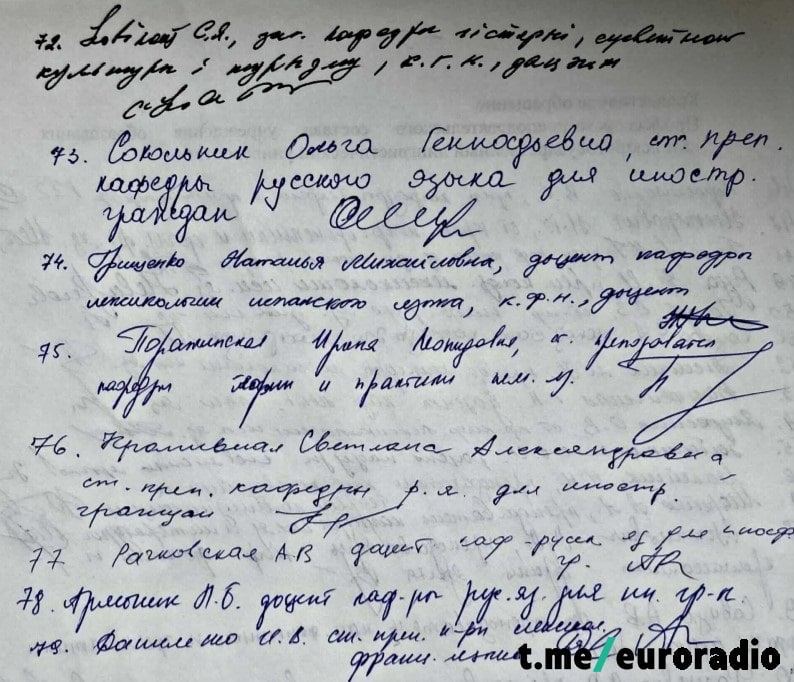 72. С.Я., заг. кафедры гісторыі, сусветнай
культуры і турызму, к.г.н., дацэнт
73. Сокольник Ольга Геннадьевна, ст. преп.
кафедры русского языка для иностр.
граждан
74. Грищенко Наталья Михайловна, доцент кафедры
лексикологии испанского языка, к.ф.н., доцент
75. Ирина Леонидовна, преподаватель
кафедры теории и практики нем. яз.
76. Крапивная Светлана Александровна
ст. преп. кафедры р.я. для иностр.
граждан
77 Рачковская А.В доцент каф русск яз для иностр
гр.
78. П.Б. доцент каф-ры рус. яз. для ин. гр-н.
79. И.В. ст. преп. к-ры лексикол.
франц. языка
t.me/euroradio